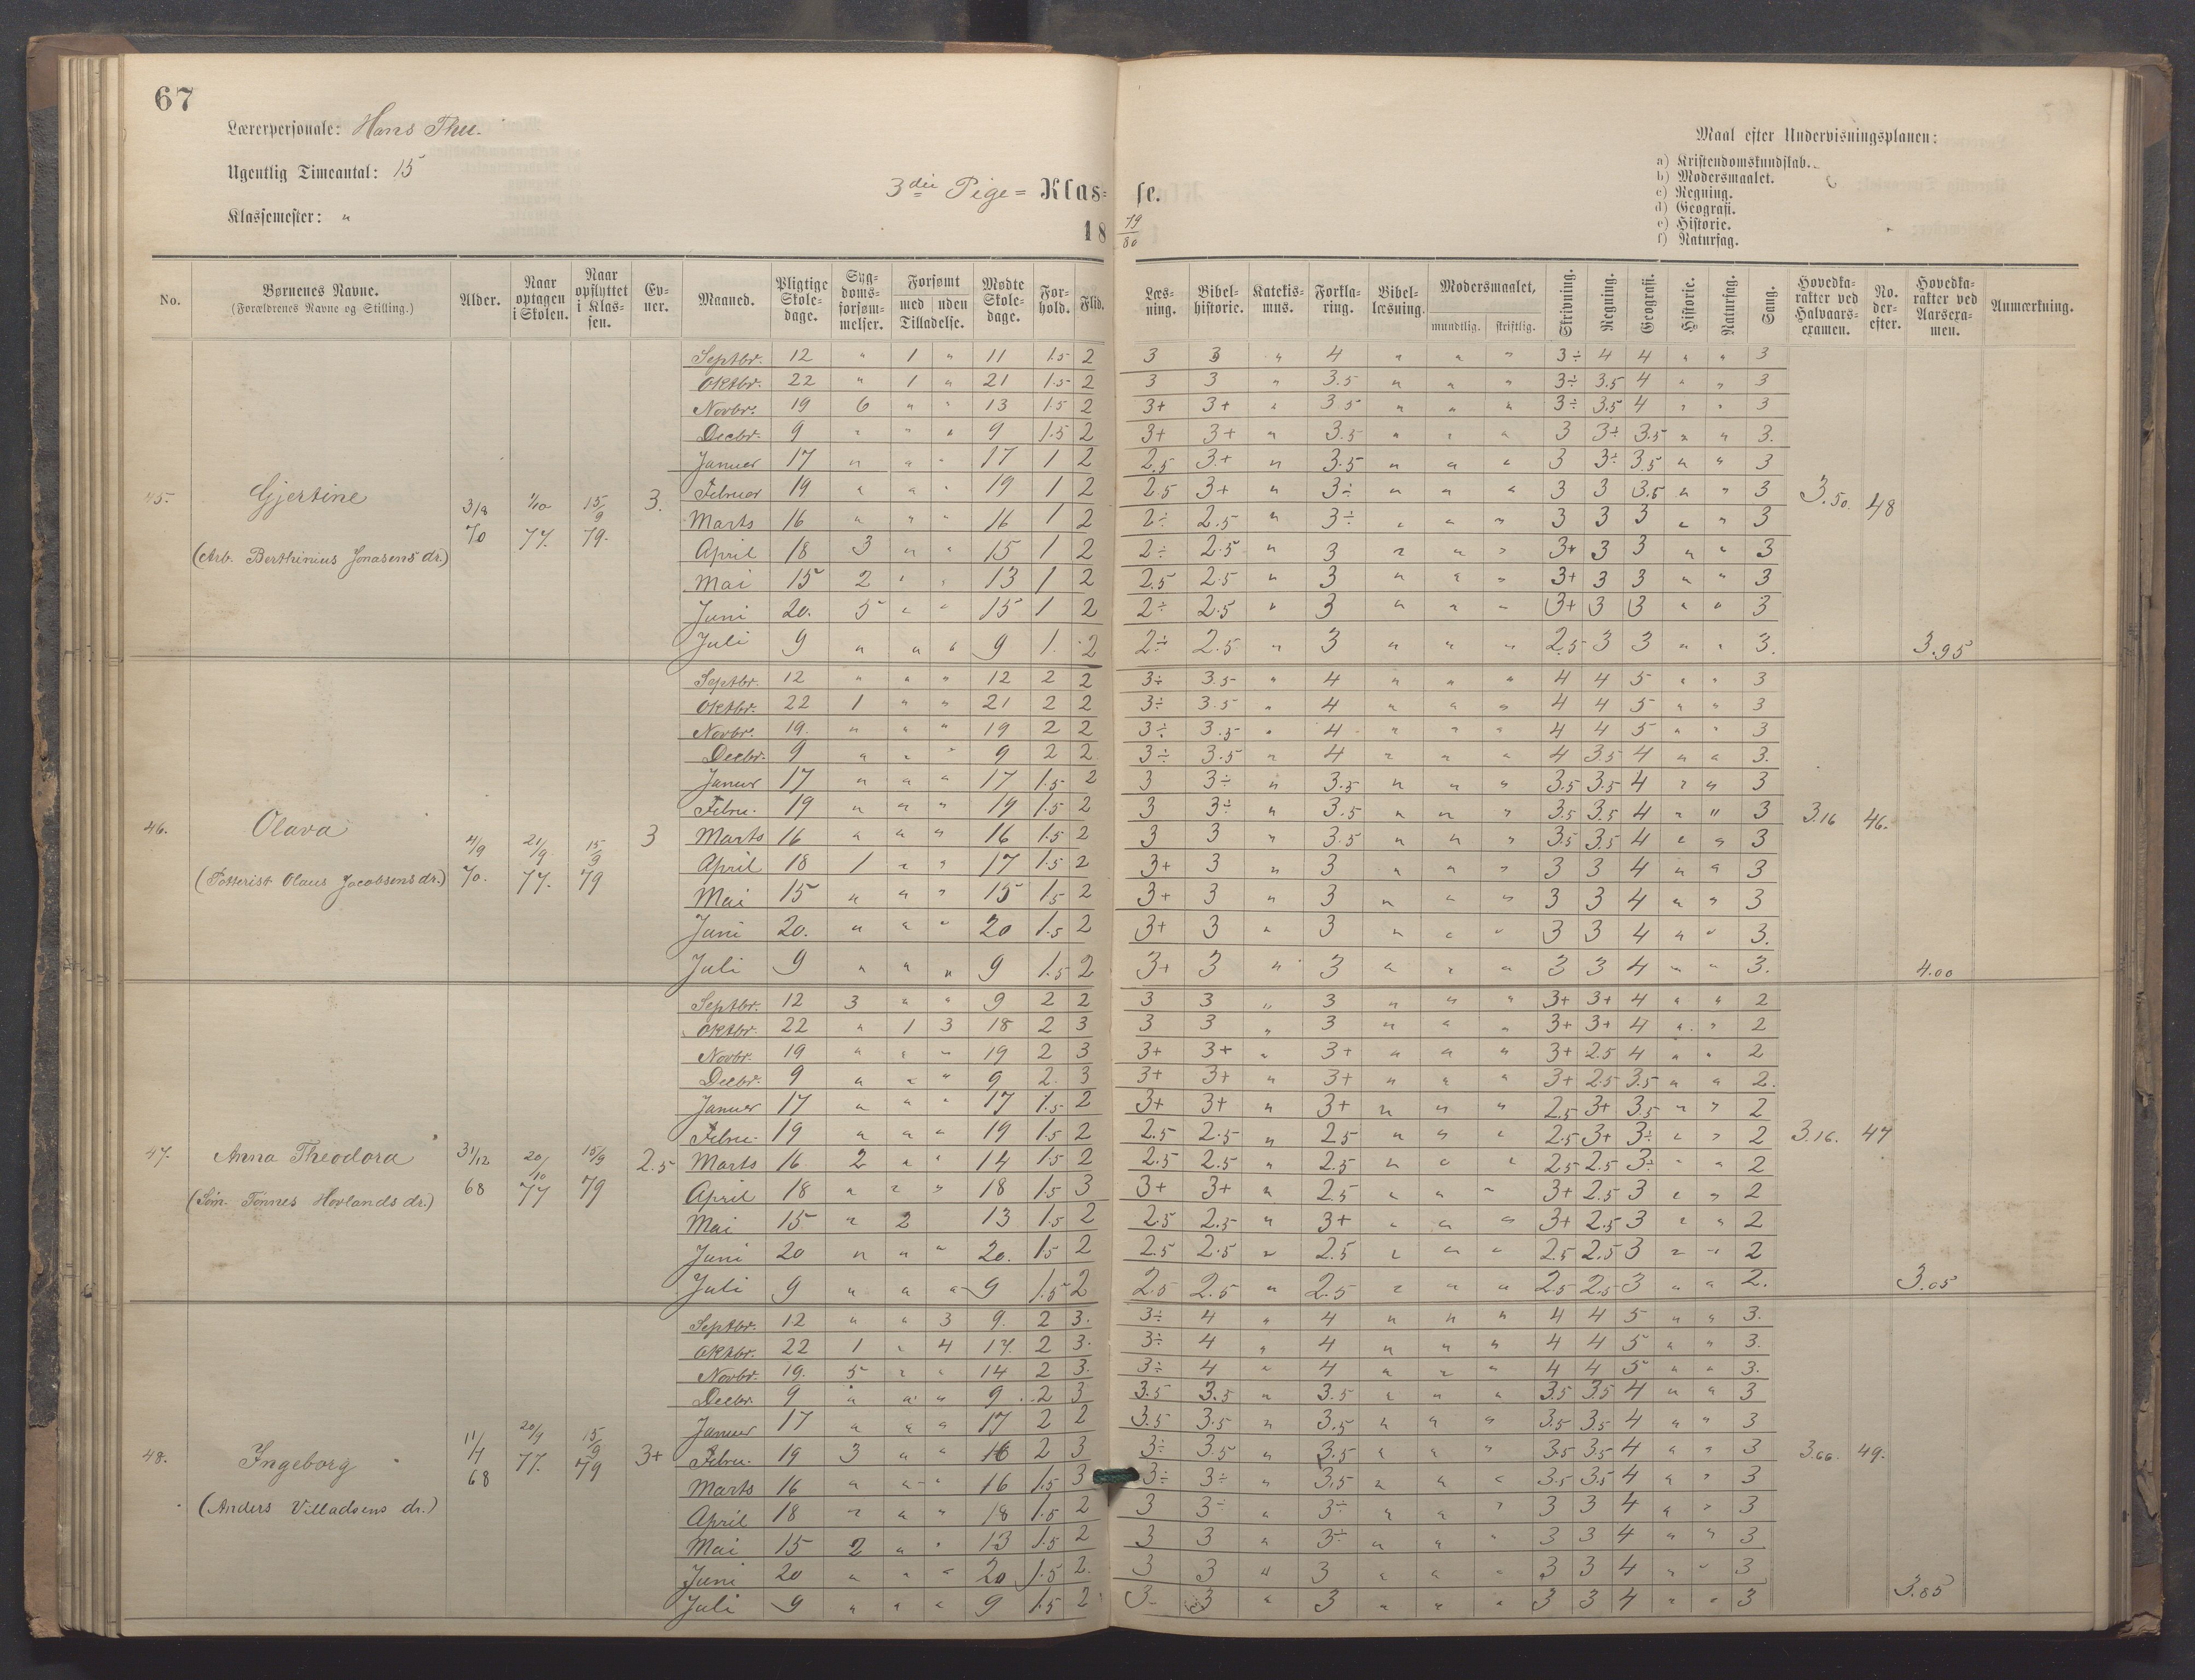 67
Lærerpersonale: Hans Thu.
Ugentlig Timeantal: 15
Klassemester: "
3die Pige= Klas= se.
18 79/80
Maal efter Undervisningsplanen:
a) Kristendomskundskab.
b) Modersmaalet.
c) Regning.
d) Geografi.
e) Historie.
f) Naturfag.
No. | Børnenes Navne. (Forældrenes Navne og Stilling.) | Alder. | Naar optagen i Skolen. | Naar opflyttet i Klassen. | Evner. | Maaned. | Pligtige Skoledage. | Sygdomsforsømmelser. | Forsømt med uden Tilladelse. | Mødte Skoledage. | Forhold. | Flid. | Læsning. | Bibelhistorie. | Katekismus. | Forklaring. | Bibellæsning. | Modersmaalet, mundtlig. skriftlig. | Skrivning. | Regning. | Geografi. | Historie. | Naturfag. | Sang. | Hovedkarakter ved Halvaarsexamen. | No. derefter. | Hovedkarakter ved Aarsexamen. | Anmærkning.
45. Gjertine (Arb. Berthinius Jonasens dr.) 3/8 70 1/10 77. 15/9 79. 3. 3.50. 48 3.95
Septbr. 12 " 1 " 11 1.5 2 3 3 " 4 " " " 3÷ 4 4 " " 3
Oktbr. 22 " 1 " 21 1.5 2 3 3 " 3.5 " " " 3÷ 3.5 4 " " 3
Novbr. 19 6 " " 13 1.5 2 3+ 3+ " 3.5 " " " 3÷ 3.5 4 " " 3
Decbr. 9 " " " 9 1.5 2 3+ 3+ " 3.5 " " " 3 3÷ 3.5 " " 3.
Januar 17 " " " 17 1 2 2.5 3.+ " 3.5 " " " 3 3÷ 3.5 " " 3
Februar 19 " " " 19 1 2 2.5 3+ " 3÷ " " " 3 3 3.5 " " 3
Marts 16 " " " 16 1 2 2÷ 2.5 " 3÷ " " " 3 3 3 " " 3
April 18 3 " " 15 1 2 2÷ 2.5 " 3 " " " 3+ 3 3 " " 3
Mai 15 2 " " 13 1 2 2.5 2.5 " 3 " " " 3+ 3 3 " " 3
Juni 20. 5 " " 15 1 2 2÷ 2.5 " 3 " " " 3+ 3 3 " " 3
Juli 9 " " " 9 1. 2 2÷ 2.5 " 3 " " " 2.5 3 3 " " 3.
46. Olava (Fotterist Olaus Jacobsens dr.) 4/9 70. 21/9 77. 15/9 79 3 3.16 46. 4.00
Septbr. 12 " " " 12 2 2 3÷ 3.5 " 4 " " " 4 4 5 " " 3
Oktbr. 22 1 " " 21 2 2 3÷ 3.5 " 4 " " " 4 4 5 " " 3
Novbr. 19. " " " 19 2 2 3÷ 3.5 " 4 " " " 4 4 5 " " 3
Decbr. 9 " " " 9 2 2 3÷ 3.5 " 4 " " " 4 3.5 4 " " 3.
Januar 17 " " " 17 1.5 2 3 3÷ " 3.5 " " " 3.5 3.5 4 " " 3
Febru. 19 " " " 19 1.5 2 3 3÷ " 3.5 " " " 3.5 3.5 4 " " 3
Marts 16 " " " 16 1.5 2 3 3 " 3.5 " " " 3.5 3.5 4 " " 3
April 18 1 " " 17 1.5 2 3+ 3 " 3 " " " 3 3 4 " " 3
Mai 15 " " " 15 1.5 2 3+ 3 " 3 " " " 3 3 4 " " 3
Juni 20. " " " 20 1.5 2 3+ 3 " 3 " " " 3 3 4 " " 3.
Juli 9 " " " 9 1.5 2 3+ 3 " 3 " " " 3 3 4 " " 3.
47. Anna Theodora (Søm. Tønnes Hovlands dr.) 31/12 68 20/10 77 15/9 79 2.5 3.16. 47 3.05
Septbr. 12 3 " " 9 2 2 3 3 " 3 " " " 3+ 3+ 4 " " 2
Oktbr. 22 " 1 3 18 2 3 3 3 " 3 " " " 3+ 3+ 4 " " 2
Novbr. 19 " " " 19 2 3 3+ 3+ " 3+ " " " 3+ 2.5 4 " " 2
Decbr. 9 " " " 9 2. 3 3+ 3+ " 3+ " " " 3+ 2.5 3.5 " " 2.
Januar 17 " " " 17 1.5 2 3+ 3+ " 3+ " " " 2.5 3+ 3.5 " " 2
Febru. 19 " " " 19 1.5 2 2.5 2.5 " 2.5 " " " 2.5 3+ 3÷ " " 2
Marts 16 2 " " 14 1.5 2 2.5 2.5 " 2.5 " " " 2.5 2.5 3÷ " " 2
April 18 " " " 18 1.5 3 3+ 3+ " 2.5 " " " 3+ 2.5 3 " " 2
Mai 15 " 2 13 1.5 2 2.5 2.5 " 3+ " " " 3+ 2.5 3 " " 2
Juni 20 " " " 20. 1.5 2 2.5 2.5 " 2.5 " " " 2.5 2.5 3 " " 2
Juli 9 " " " 9 1.5 2 2.5 2.5 " 2.5 " " " 2.5 2.5 3 " " 2.
48. Ingeborg (Anders Villadsens dr.) 11/4 68 20/9 77. 15/9 79 3+ 3.66. 49. 3.85
Septbr. 12 " " 3 9. 2 3. 3÷ 4 " 4 " " " 4 4 5 " " 3.
Oktbr. 22 1 " 4 17. 2 3. 3÷ 4 " 4 " " " 4 4 5 " " 3.
Novbr. 19. 5 " " 14 2 3. 3÷ 4 " 4 " " " 4 4 5 " " 3.
Decbr. 9 " " " 9 2 3 3.5 3.5 " 3.5 " " " 3.5 3.5 4 " " 3
Januar 17 " " " 17 2 2 3.5 3.5 " 3.5 " " " 3.5 3.5 4 " " 3
Febru. 19 3 " " 16 2 3 3÷ 3.5 " 3.5 " " " 3.5 3.5 4 " " 3
Marts 16 " " " 16 1.5 3 3÷ 3÷ " 3.5 " " " 3.5 3.5 4 " " 3
April 18 " " " 18 1.5 2 3 3÷ " 3÷ " " " 3 3 4 " " 3
Mai 15 2 " " 13 1.5 2 3 3 " 3÷ " " " 3 3 4 " " 3
Juni 20 " " " 20 1.5 2. 3 3 " 3 " " " 3 3 4 " " 3
Juli 9 " " " 9 1.5 2 3 3 " 3 " " " 3 3 4 " " 3